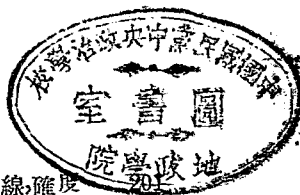 中國國民黨中央政治學校
圖書室
地政學院
線確度 201